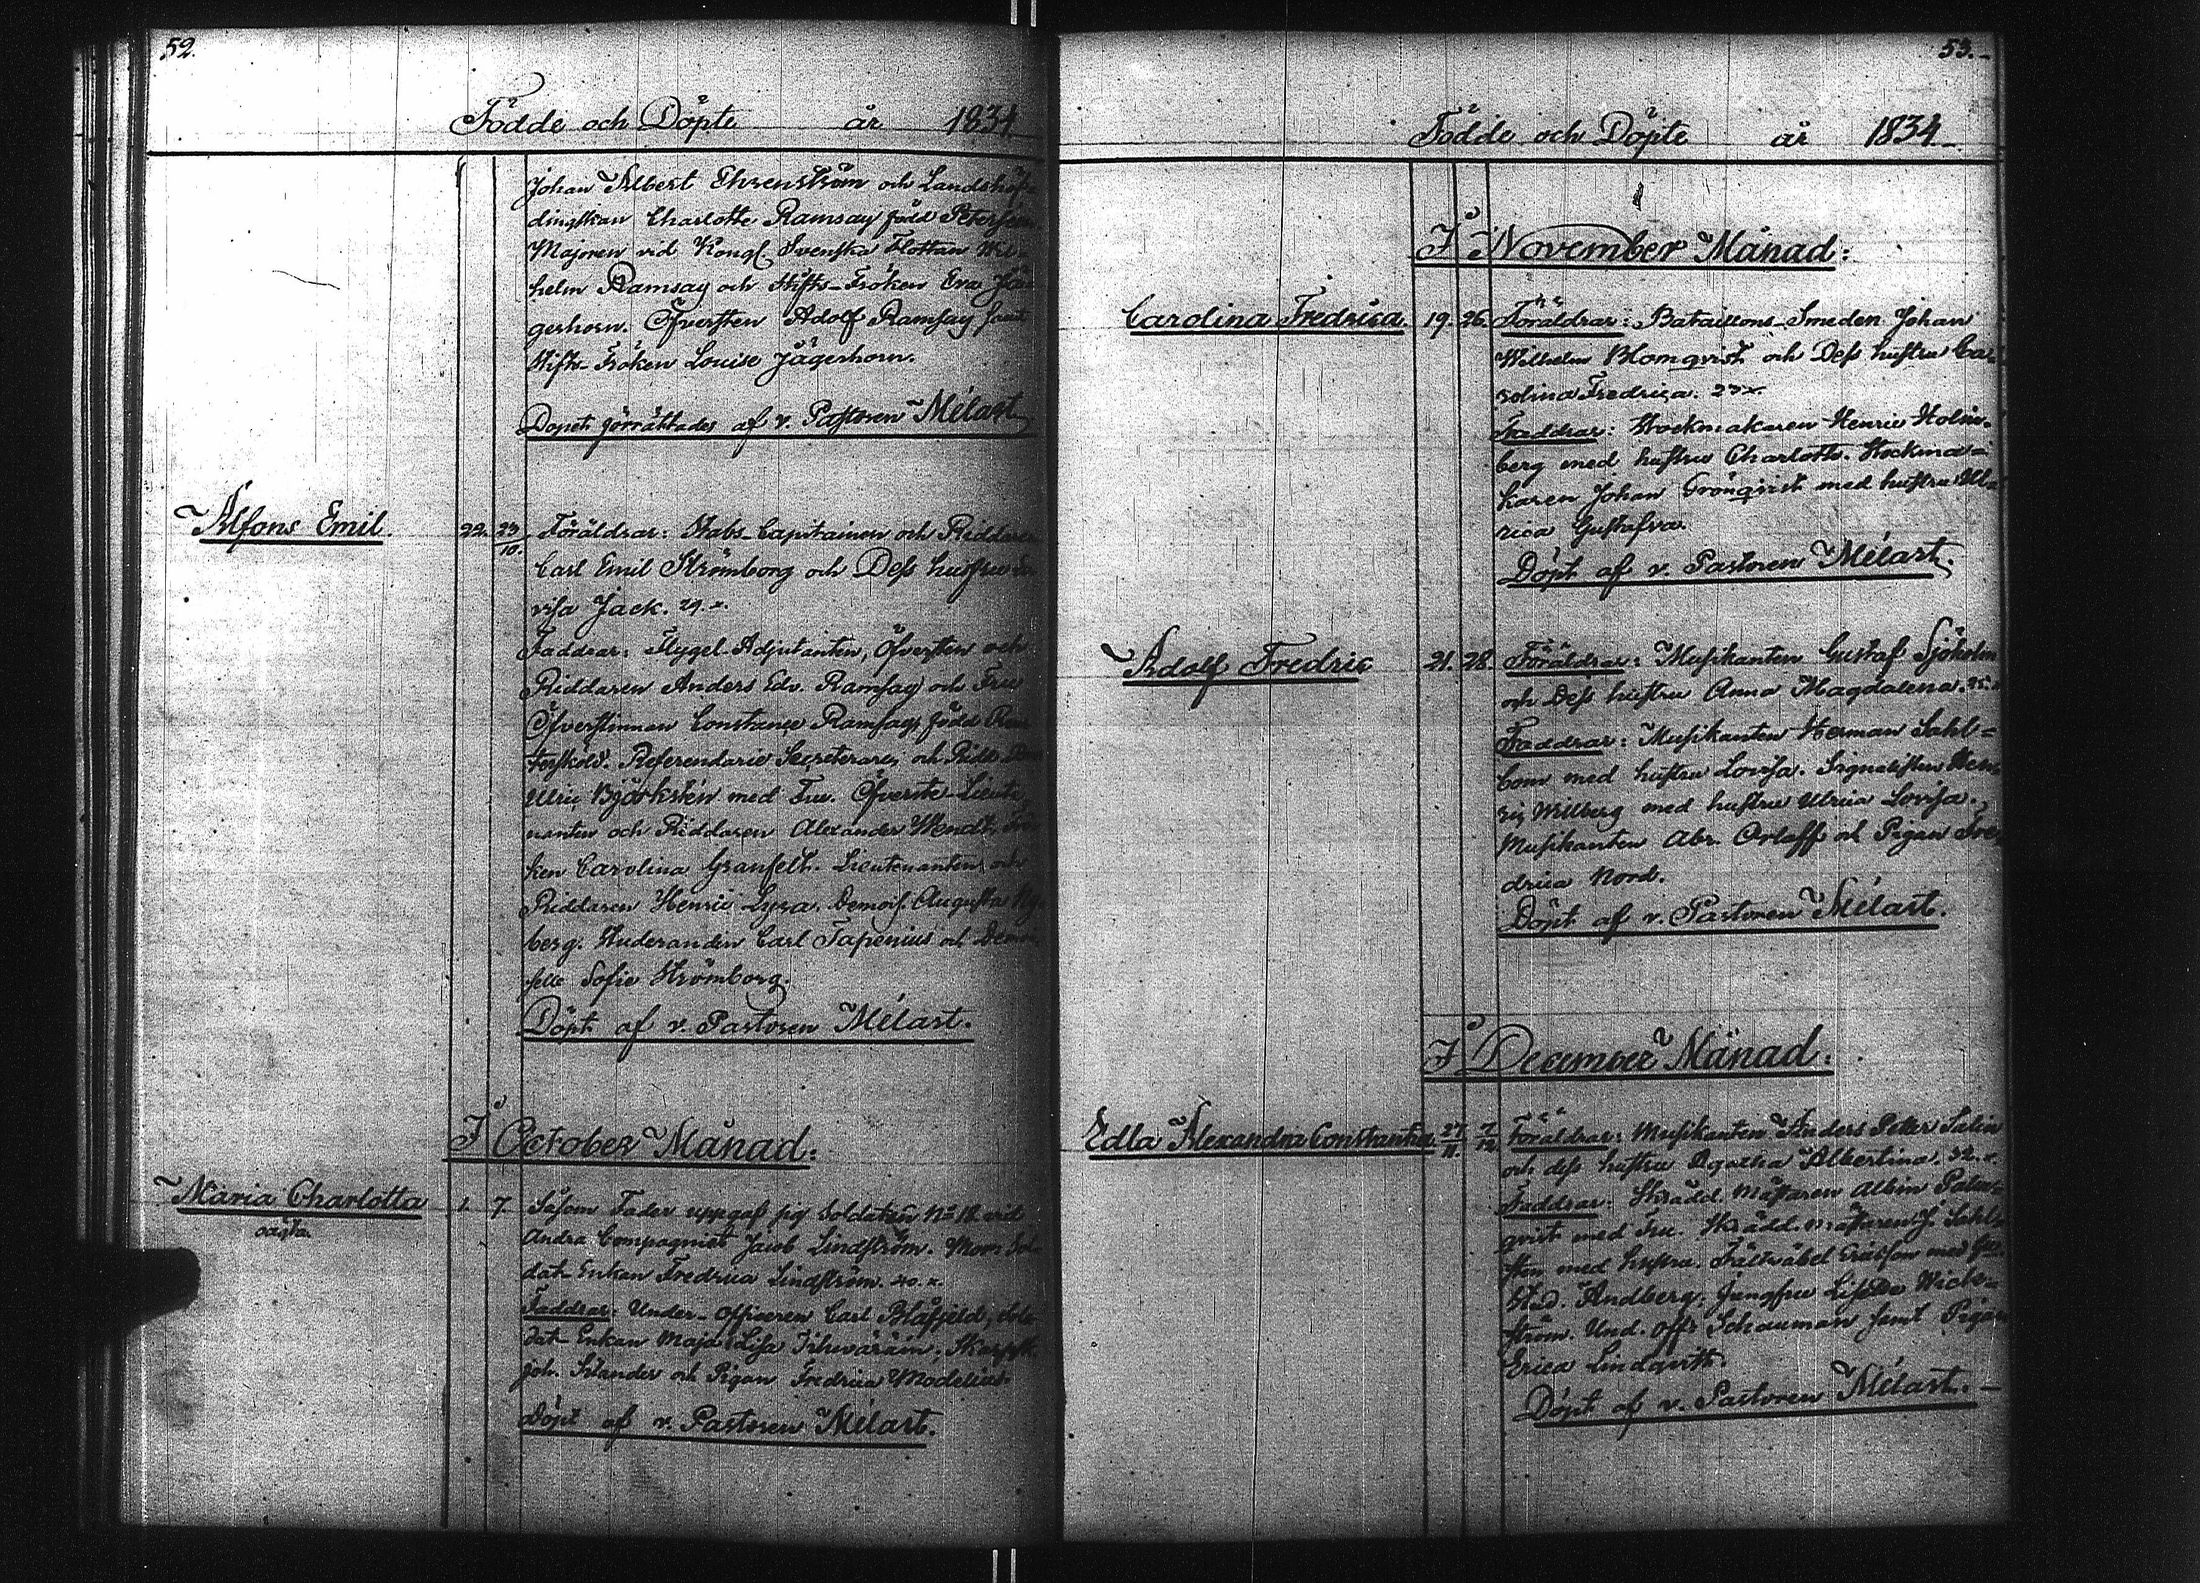 52.
Födde och Döpte år 1834
Johan Albert Ehrenström och Landshöf-
dingskan Charlotte Ramsay född
Majoren vid Kongl. Svenska Flottan Wil-
helm Ramsay och Stifts-Fröken Eva Jä-
gerhorn. Öfversten Adolf Ramsay samt
Stifts-Fröken Louise Jägerhorn.
Dopet förrättades af v. Pastoren Mélart
Alfons Emil. 22. 23/10. Föräldrar: Stabs-Capitainen och Riddaren
Carl Emil Strömborg och Dess hustru
visa Jack. 29. x.
Faddrar: Flygel-Adjutanten, Öfversten och
Riddaren Anders Edv. Ramsay och Fru
Öfverstinnan Constance Ramsay, född
Referendarie Secreteraren och Ridd.
Ulric Björkstén med Fru. Öfverste-Lieute-
nanten och Riddaren Alexander Wendt, Frö-
ken Carolina Granfelt. Lieutenanten och
Riddaren Henric Lyra. Demois. Augusta
berg. Studeranden Carl Tapenius och Demoi-
selle Sofie Strömborg.
Döpt af v. Pastoren Mélart.
I October Månad:
Maria Charlotta 1. 7. Såsom Fader uppgaf sig Soldaten No 18 vid
oägta.
Andra Compagniet Jacob Lindström. Mor: Sol-
dat-Enkan Fredrica Lindström. 40. x.
Faddrar: Under-Officeren Carl Blåfjeld,
dat-Enkan Maja Lisa
Joh. Selander och Pigan Fredrica Modelius
Döpt af v. Pastoren Mélart.
53.
Födde och Döpte år 1834
I November Månad:
Carolina Fredrica. 19. 26. Föräldrar: Bataillons-Smeden Johan
Wilhelm Blomqvist och Dess hustru Ca-
rolina Fredrica. 23 x.
Faddrar: Stockmakaren Henric Holm-
berg med hustru Charlotta. Stockma-
karen Johan Grönqvist med hustru Ul-
rica Gustafva.
Döpt af v. Pastoren Mélart.
Adolf Fredric 21. 28. Föräldrar: Musikanten Gustaf Sjöholm
och Dess hustru Anna Magdalena. 25. x
Faddrar: Musikanten Herman Sahl-
bom med hustru Lovisa. Signalisten Hen-
ric Willberg med hustru Ulrica Lovisa.
Musikanten Abr. Orloff och Pigan Fre-
drica Nord.
Döpt af v. Pastoren Mélart.
I December Månad:
Edla Alexandra Constantia 27/11 7/12 Föräldrar: Musikanten Anders Petter Salin
och dess hustru Agatha Albertina. 32. x.
Faddrar: Skrädd. mästaren Albin Palm-
qvist med Fru. Skrädd. mästaren J. Sahl-
sten med hustru. Fältväbel Ericsson med
Stud. Andberg. Jungfru Lisette Wick-
ström. Und. Offr. Schauman samt Pigan
Erica Lindqvist.
Döpt af v. Pastoren Mélart.